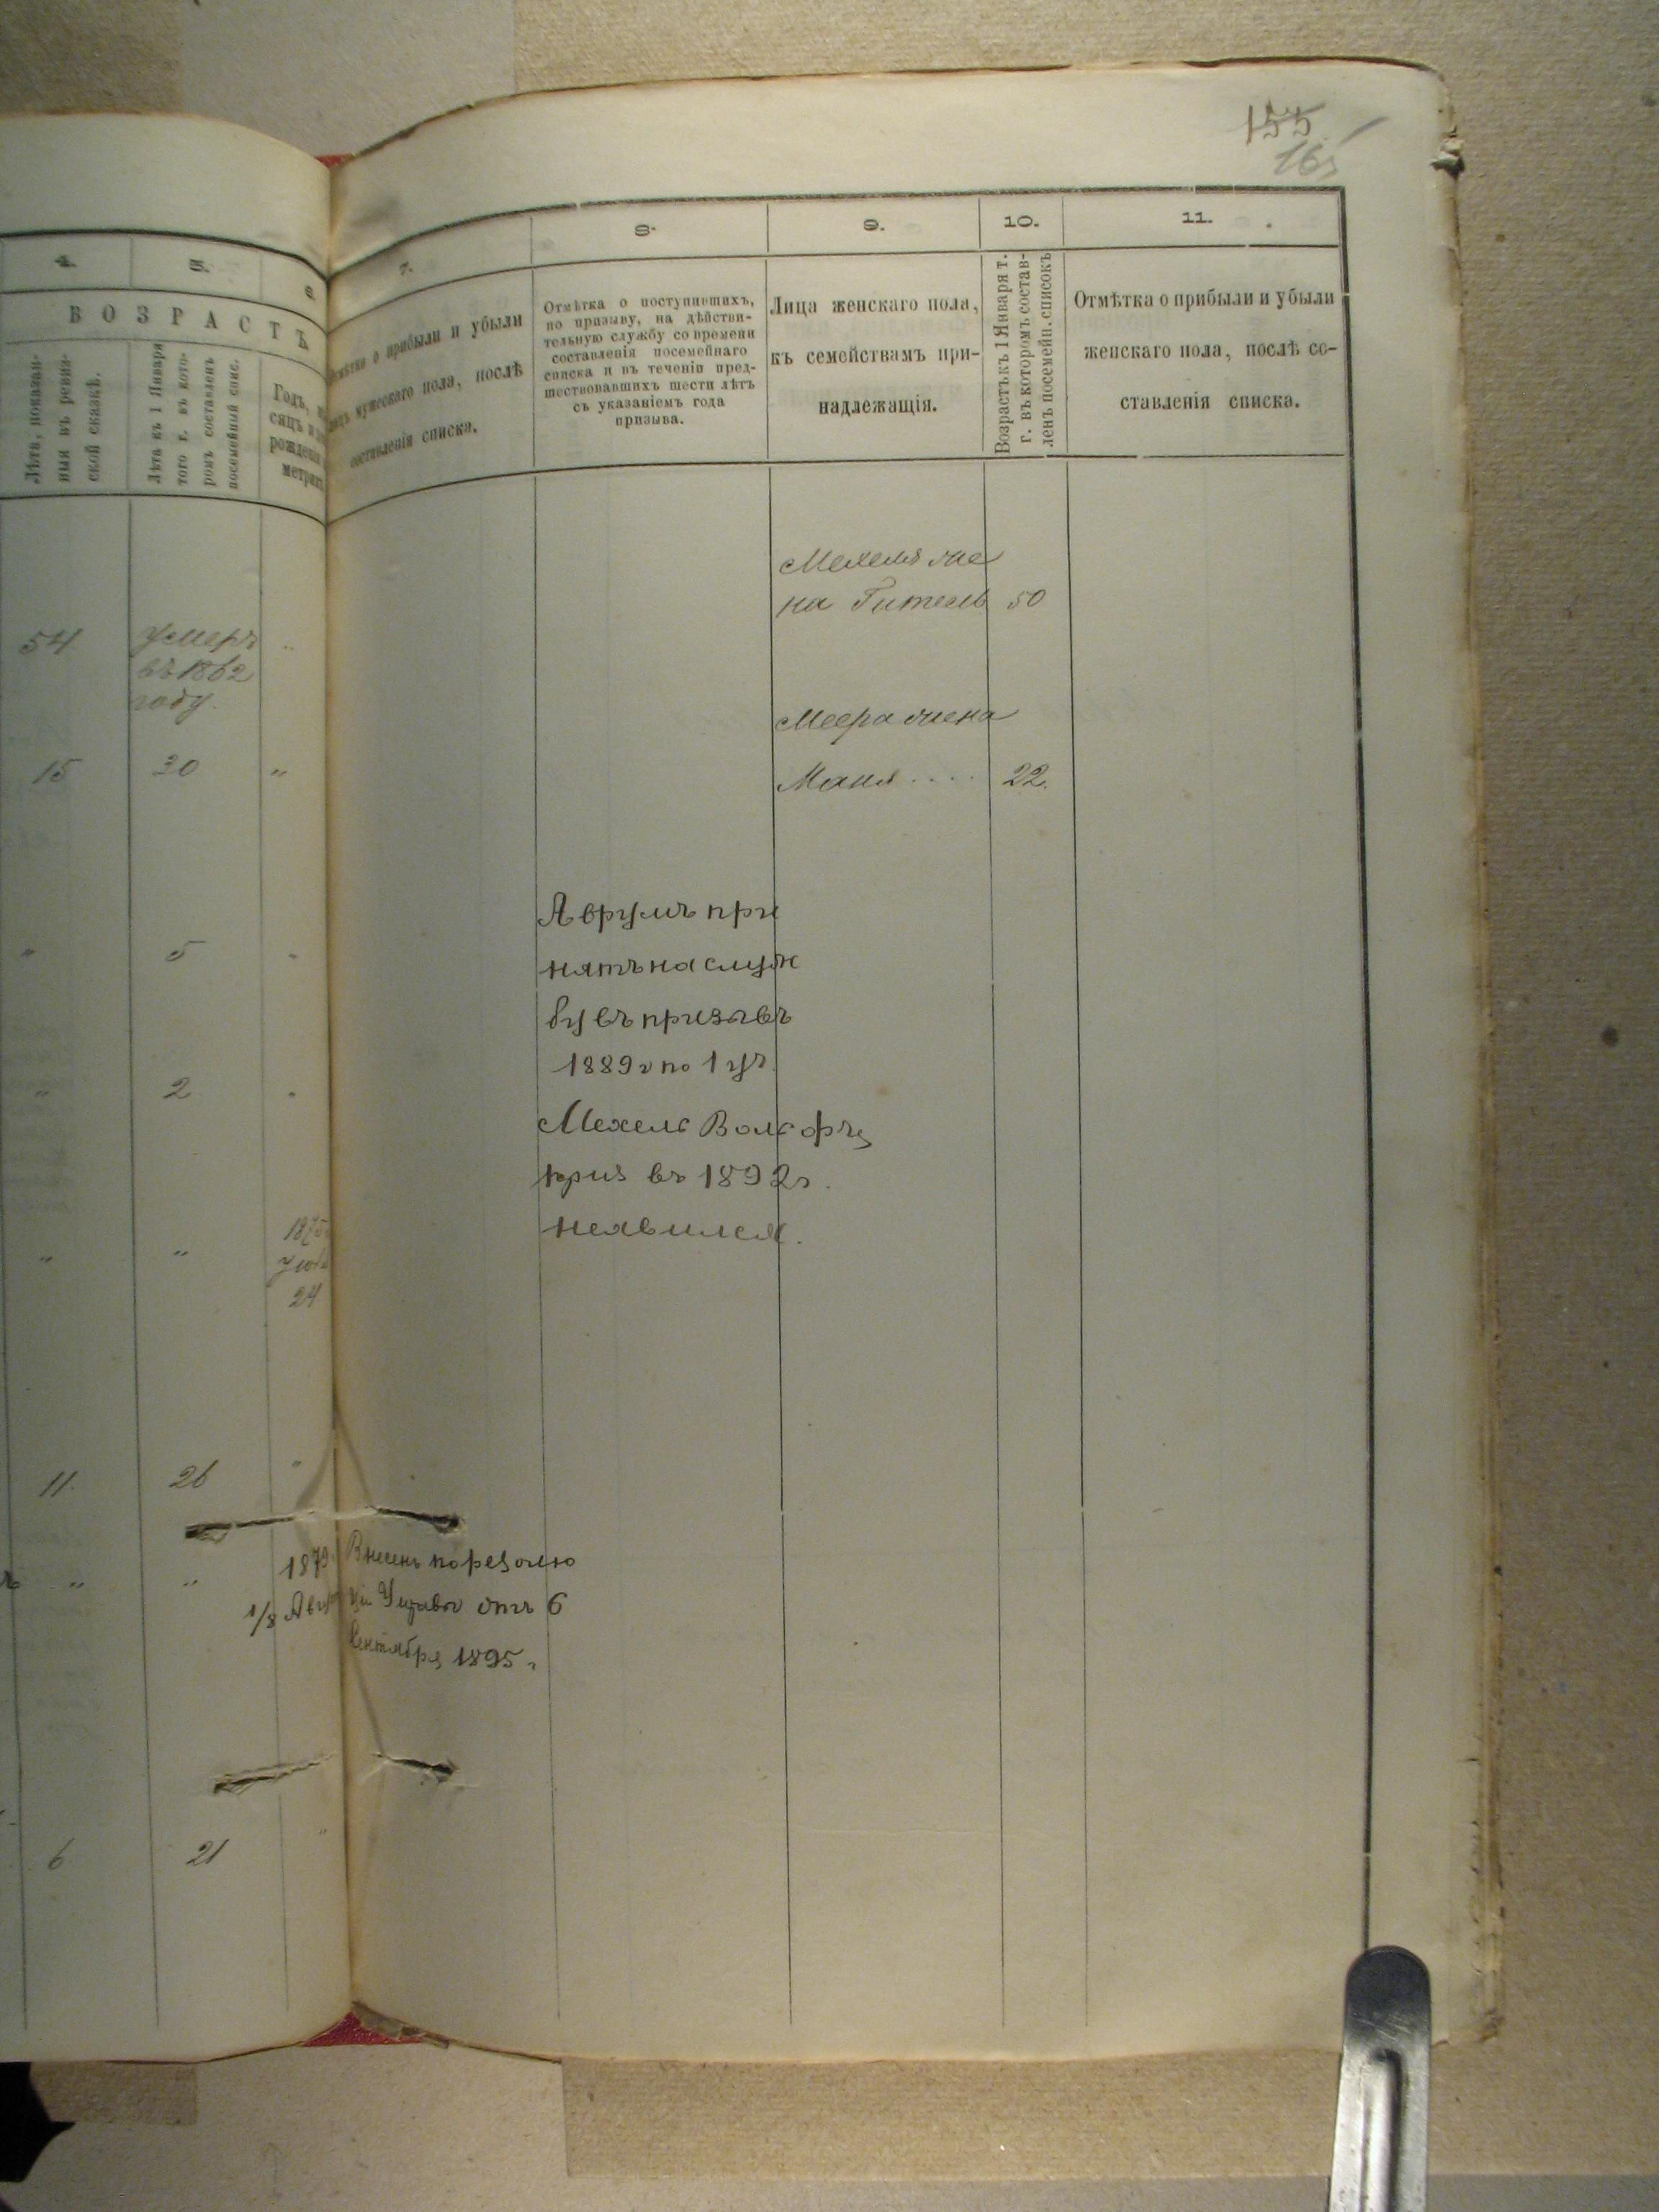 155
4.
5.
6
ВОЗРАСТЪ
Лѣта, показан-
ныя въ ревиз-
ской сказкѣ.
Лѣта къ 1 Января
того г. въ кото-
ромъ составленъ
посемейный спис.
Годъ,
сяцъ и
рожденія
метрик
54
Умеръ
въ 1862
году.
15
30
"
"
5
"
2
"
"
1875
24
11.
26
"
"
"
1879
1/8 Авг
6
21
7.
Отмѣтка о прибыли и убыли
лицъ мужескаго пола, послѣ
составленія списка.
8.
Отмѣтка о поступившихъ,
по призыву, на дѣйстви-
тельную службу со времени
составленія посемейнаго
списка и въ теченіи пред-
шествовавшихъ шести лѣтъ
съ указаніемъ года
призыва.
9.
Лица женскаго пола,
къ семействамъ при-
надлежащія.
10.
Возрастъ къ 1 Января т.
г. въ которомъ состав-
ленъ посемейн. списокъ
11.
Отмѣтка о прибыли и убыли
женскаго пола, послѣ со-
ставленія списка.
Мехеля же
на Гитель 50
Меера жена
Маня .... 22.
Аврумъ при
нятъ на служ
бу въ призывъ
1889 г по 1 уч.
Мехель Вольфъ
приз въ 1892 г.
неявился.
Внесенъ по резолю
ціи Управы отъ 6
Сентября 1895 г